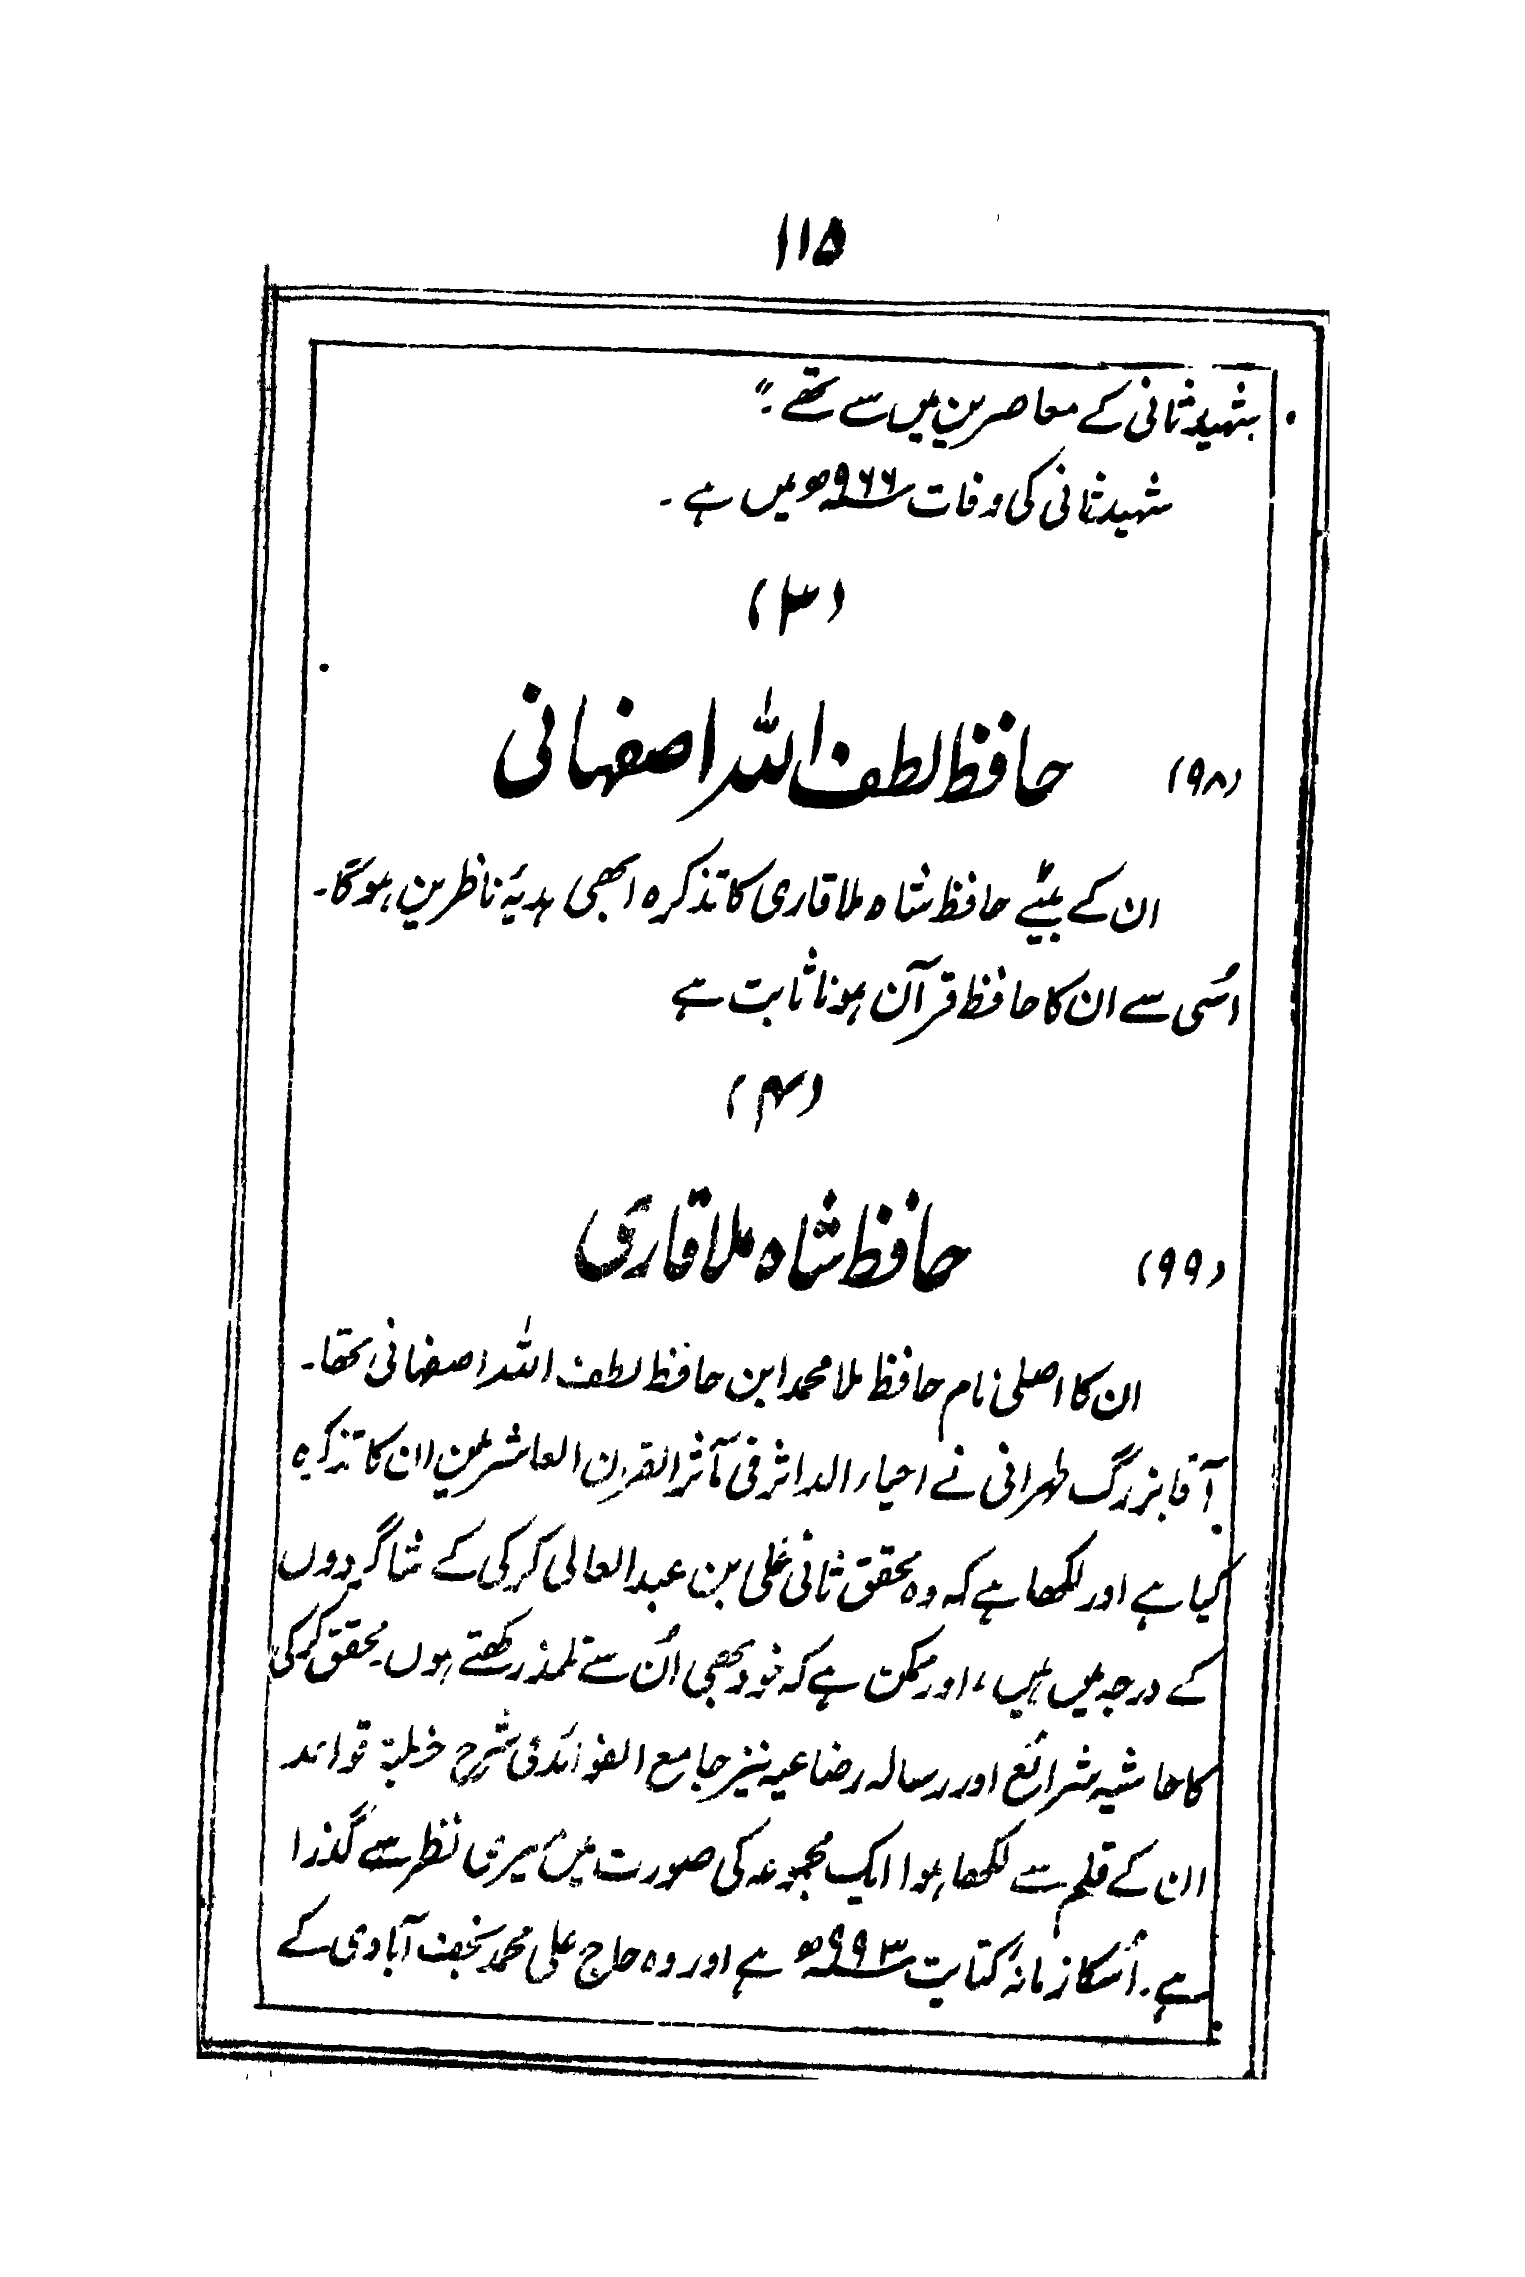 ۱۱۵
شہید ثانی کے معاصرین میں سے تھے۔"
شہید ثانی کی وفات ۹۶۶ھ میں ہے۔
(۳)
(۹۸) حافظ لطف اللہ اصفہانی
ان کے بیٹے حافظ شاہ ملا قاری کا تذکرہ ابھی ہدیۂ ناظرین ہوگا۔
اُسی سے ان کا حافظ قرآن ہونا ثابت ہے
(۴)
(۹۹) حافظ شاہ ملا قاری
ان کا اصلی نام حافظ ملا محمد ابن حافظ لطف اللہ اصفہانی تھا۔
آقا بزرگ طہرانی نے احیاء الداثر فی مآثر القرن العاشر میں ان کا تذکرہ
کیا ہے اور لکھا ہے کہ وہ محقق ثانی علی بن عبد العالی کرکی کے شاگردوں
کے درجہ میں ہیں، اور ممکن ہے کہ خود بھی اُن سے تلمذ رکھتے ہوں۔ محقق کرکی
کا حاشیہ شرائع اور رسالہ رضاعیہ نیز جامع الفوائد فی شرح خطبۃ قواعد
ان کے قلم سے لکھا ہوا ایک مجموعہ کی صورت میں میری نظر سے گذرا
ہے۔ اُسکا زمانۂ کتابت ۹۹۳ھ ہے اور وہ حاج علی محمد نجف آبادی کے